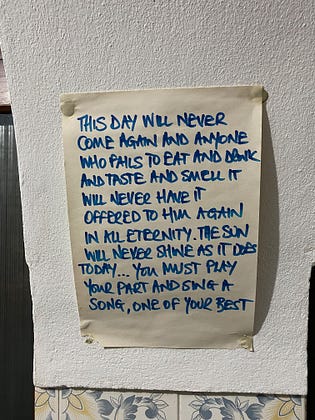 THIS DAY WILL NEVER
COME AGAIN AND ANYONE
WHO FAILS TO EAT AND DRINK
AND TASTE AND SMELL IT
WILL NEVER HAVE IT
OFFERED TO HIM AGAIN
IN ALL ETERNITY. THE SUN
WILL NEVER SHINE AS IT DOES
TODAY... YOU MUST PLAY
YOUR PART AND SING A
SONG, ONE OF YOUR BEST